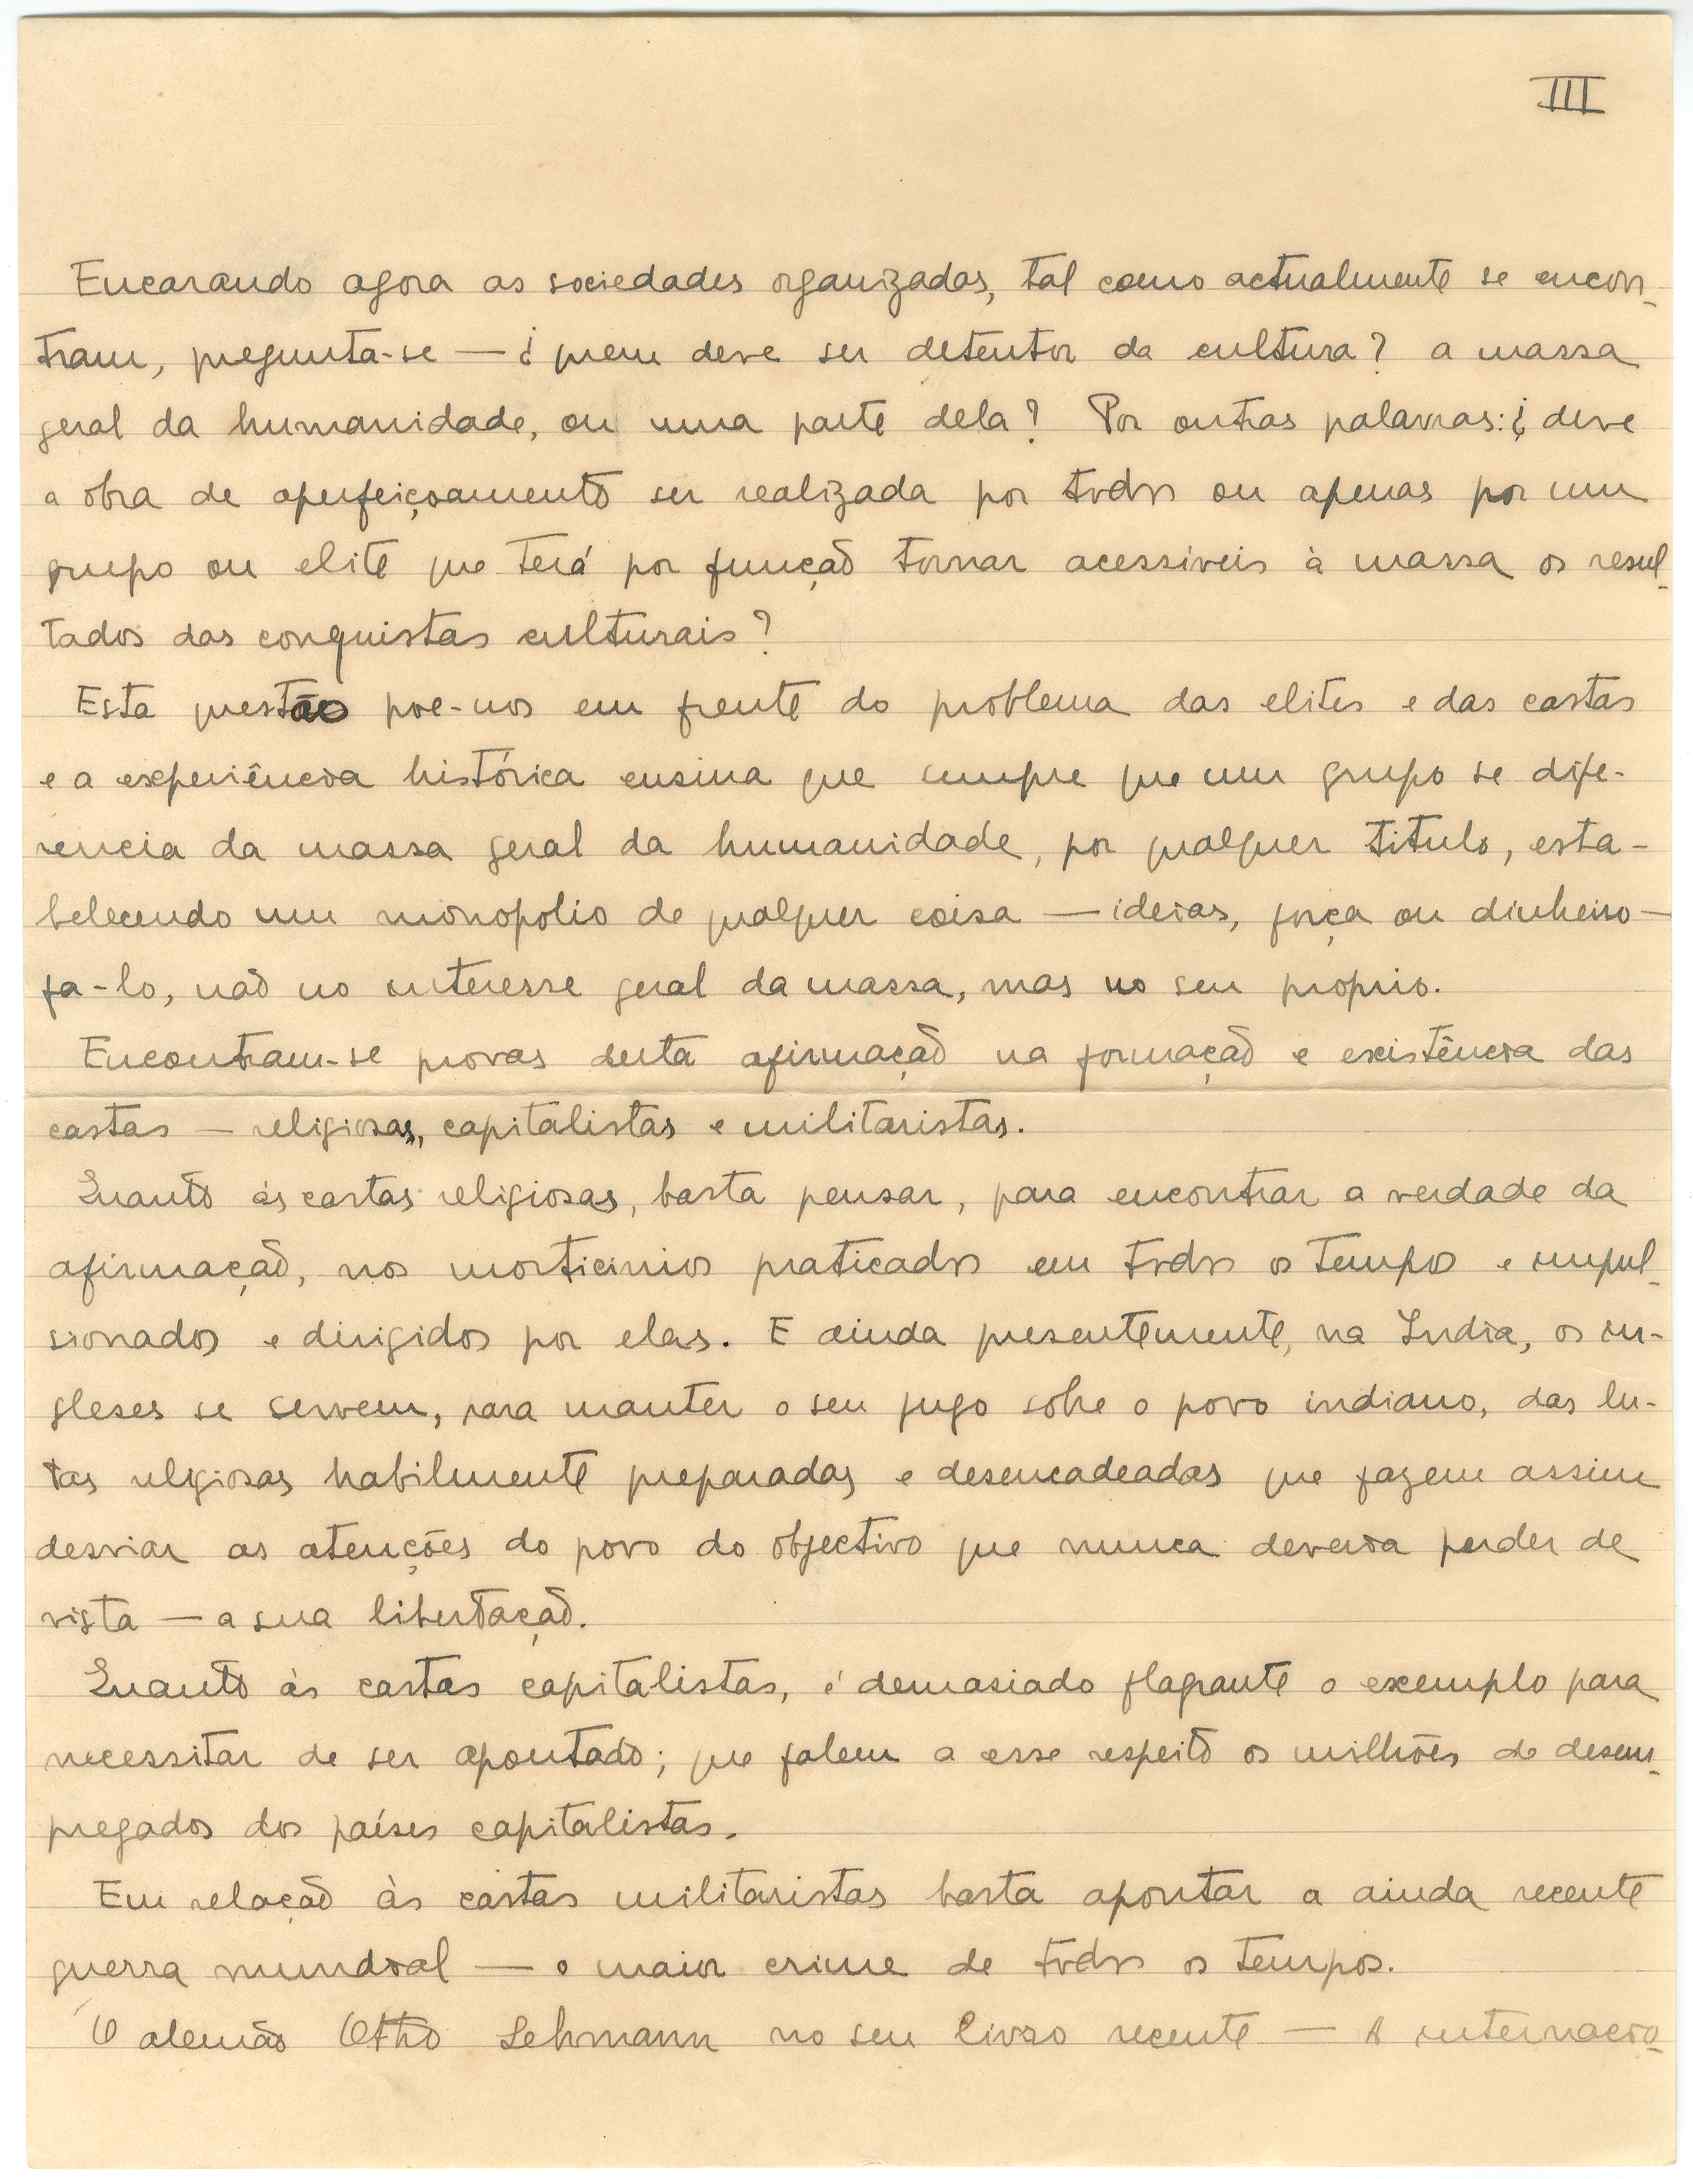 III
Encarando agora as sociedades organizadas, tal como actualmente se encon-
tram, pregunta-se — ¿ quem deve ser detentor da cultura? a massa
geral da humanidade, ou uma parte dela? Por outras palavras: ¿ deve
a obra de aperfeiçoamento ser realizada por todos ou apenas por um
grupo ou elite que terá por função tornar acessíveis à massa os resul-
tados das conquistas culturais?
Esta questão põe-nos em frente do problema das elites e das castas
e a experiência histórica ensina que sempre que um grupo se dife-
rencia da massa geral da humanidade, por qualquer titulo, esta-
belecendo um monopolio de qualquer coisa — ideias, força ou dinheiro —
fa-lo, não no interesse geral da massa, mas no seu proprio.
Encontram-se provas desta afirmação na formação e existência das
castas — religiosas, capitalistas e militaristas.
Quanto ás castas religiosas, basta pensar, para encontrar a verdade da
afirmação, nos morticinios praticados em todos os tempos e impul-
sionados e dirigidos por elas. E ainda presentemente, na India, os in-
gleses se servem, para manter o seu jugo sobre o povo indiano, das lu-
tas religiosas habilmente preparadas e desencadeadas que fazem assim
desviar as atenções do povo do objectivo que nunca deveria perder de
vista — a sua libertação.
Quanto às castas capitalistas, é demasiado flagrante o exemplo para
necessitar de ser apontado; que falem a esse respeito os milhões de desem-
pregados dos países capitalistas.
Em relação às castas militaristas basta apontar a ainda recente
guerra mundial — o maior crime de todos os tempos.
O alemão Otho Lehmann no seu livro recente — A internacio-